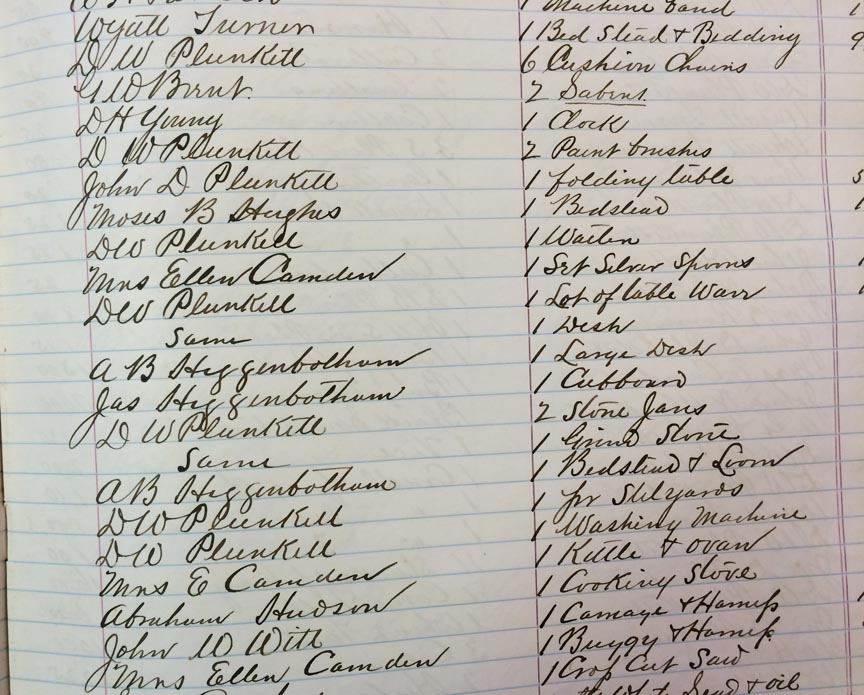 1 Machine Band
Wyatt Turner 1 Bed Stead & Bedding 9
D W Plunkett 6 Cushion Chairs
G W Brent. 2 Sabers
D H Young 1 Clock
D W Plunkett 2 Paint brushes
John D Plunkett 1 folding table
Moses B Hughes 1 Bedstead
D W Plunkett 1 Waiten
Mrs Ellen Camden 1 Set Silver Spoons
D W Plunkett 1 Lot of table Warr
Same 1 Dish
A B Higgenbotham 1 Large Dish
Jas Higgenbotham 1 Cubboard
D W Plunkett 2 Stone Jars
Same 1 Grind Stone
A B Higgenbotham 1 Bedstead & Loom
D W Plunkett 1 pr Stilyards
D W Plunkett 1 Washing Machine
Mrs E Camden 1 Kittle & ovan
Abraham Hudson 1 Cooking Stove
John W Witt 1 Carriage & Harness
Mrs Ellen Camden 1 Buggy & Harness
1 Crop Cut Saw
Lead & oil